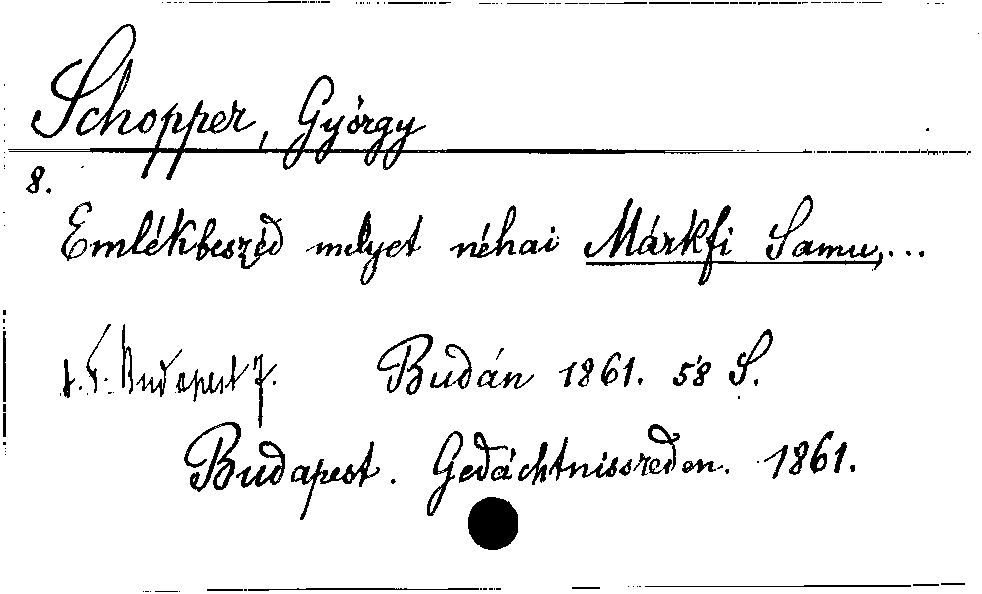 Schopper, György
8.
Emlékbeszéd melyet néhai Márkfi Samu,...
Budapest 7. Budán 1861. 58 S.
Budapest. Gedächtnissreden. 1861.